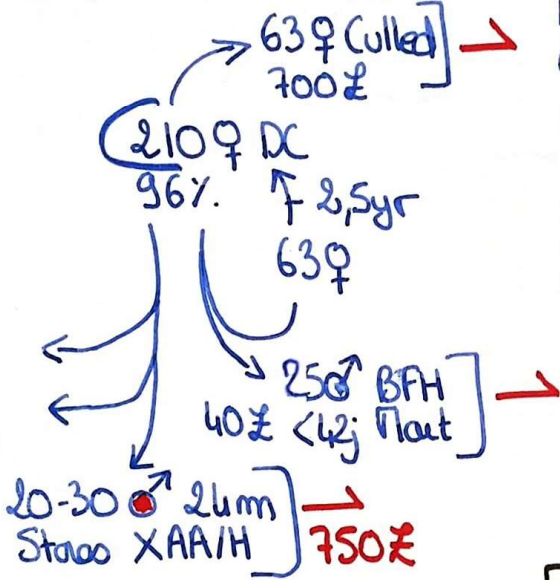 63♀ Culled
700£
210♀ DC
96%
2,5yr
63♀
25♂ BFH
40£ <42j Mart
20-30 ♂ 24m
Stores XAA/H
750£